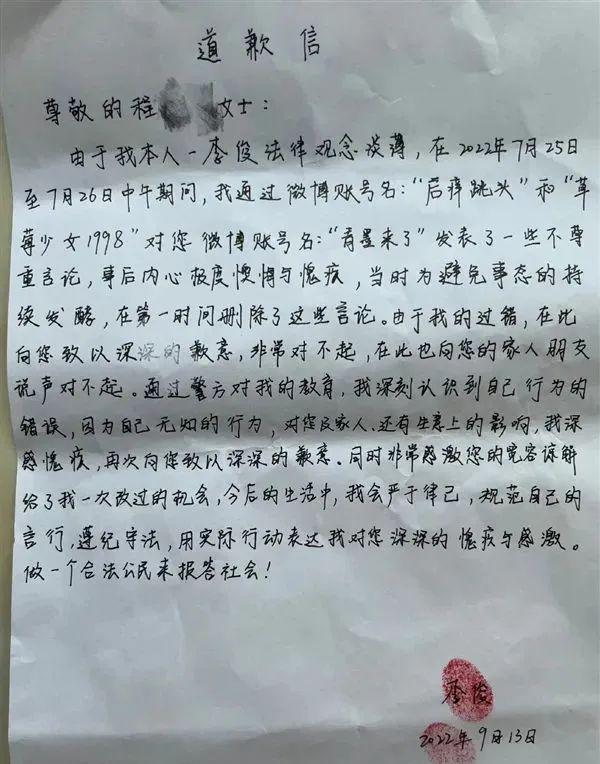 道歉信
尊敬的程 女士：
由于我本人－李俊法律观念淡薄，在2022年7月25日
至7月26日中午期间，我通过微博账号名：“后痒跳头”和“草
莓少女1998”对您微博账号名：“青墨来了”发表了一些不尊
重言论，事后内心极度懊悔与愧疚，当时为避免事态的持
续发酵，在第一时间删除了这些言论。由于我的过错，在此
向您致以深深的歉意，非常对不起，在此也向您的家人朋友
说声对不起。通过警方对我的教育，我深刻认识到自己行为的
错误，因为自己无知的行为，对您及家人、还有生意上的影响，我深
感愧疚，再次向您致以深深的歉意。同时非常感激您的宽容谅解
给了我一次改过的机会，今后的生活中，我会严于律己，规范自己的
言行，遵纪守法，用实际行动表达我对您深深的愧疚与感激。
做一个合法公民来报答社会！
李俊
2022年9月13日